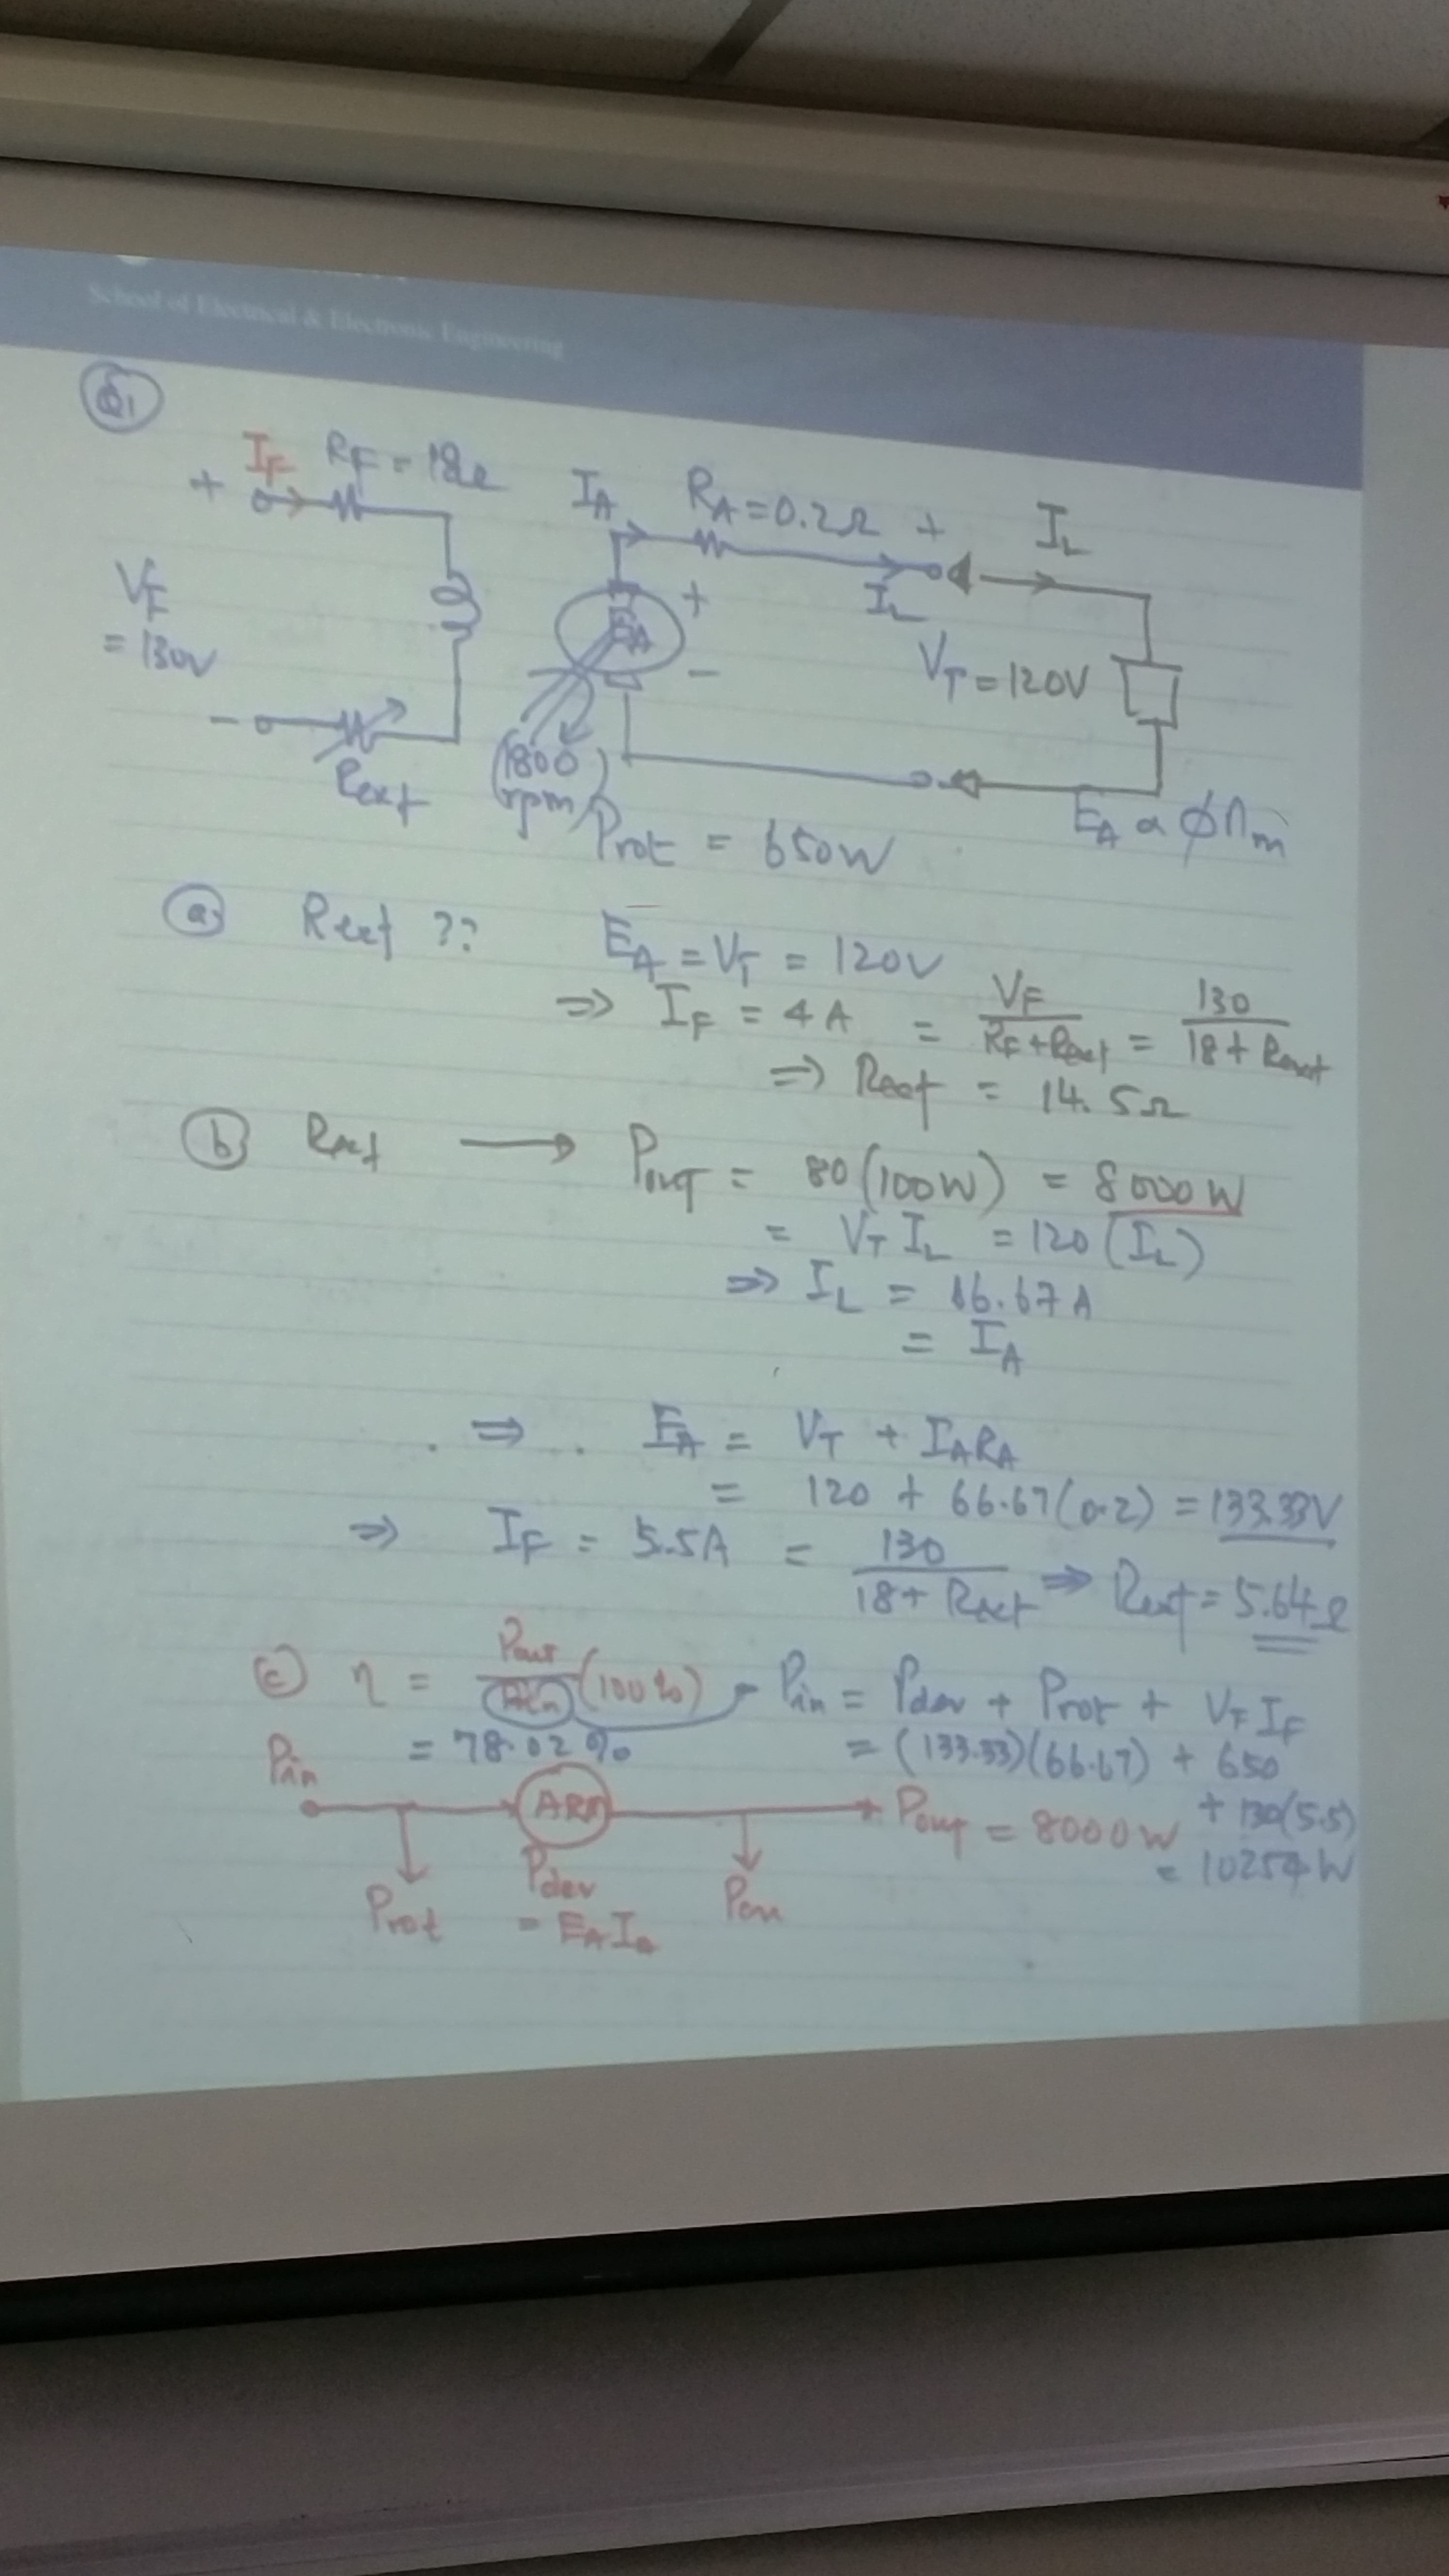 School of Electrical & Electronic Engineering
Q1
IF RF = 18Ω
IA RA = 0.2Ω + IL
+
VF
= 130V
EA + −
IL
VT = 120V
−
Rext
1800
rpm
EA ∝ φ nm
Prot = 650W
(a) Rext ?? EA = VT = 120V
⇒ IF = 4A = VF / (RF + Rext) = 130 / (18 + Rext)
⇒ Rext = 14.5Ω
(b) Rext → Pout = 80(100W) = 8000W
= VT IL = 120(IL)
⇒ IL = 66.67A
= IA
⇒ EA = VT + IARA
= 120 + 66.67(0.2) = 133.33V
⇒ IF = 5.5A = 130 / (18 + Rext) ⇒ Rext = 5.64Ω
(c) η = Pout / Pin (100%) Pin = Pdev + Prot + VF IF
= 78.02% = (133.33)(66.67) + 650
+ 130(5.5)
= 10254W
Pin ARM Pout = 8000W
Prot Pdev Pcu
= EA IA